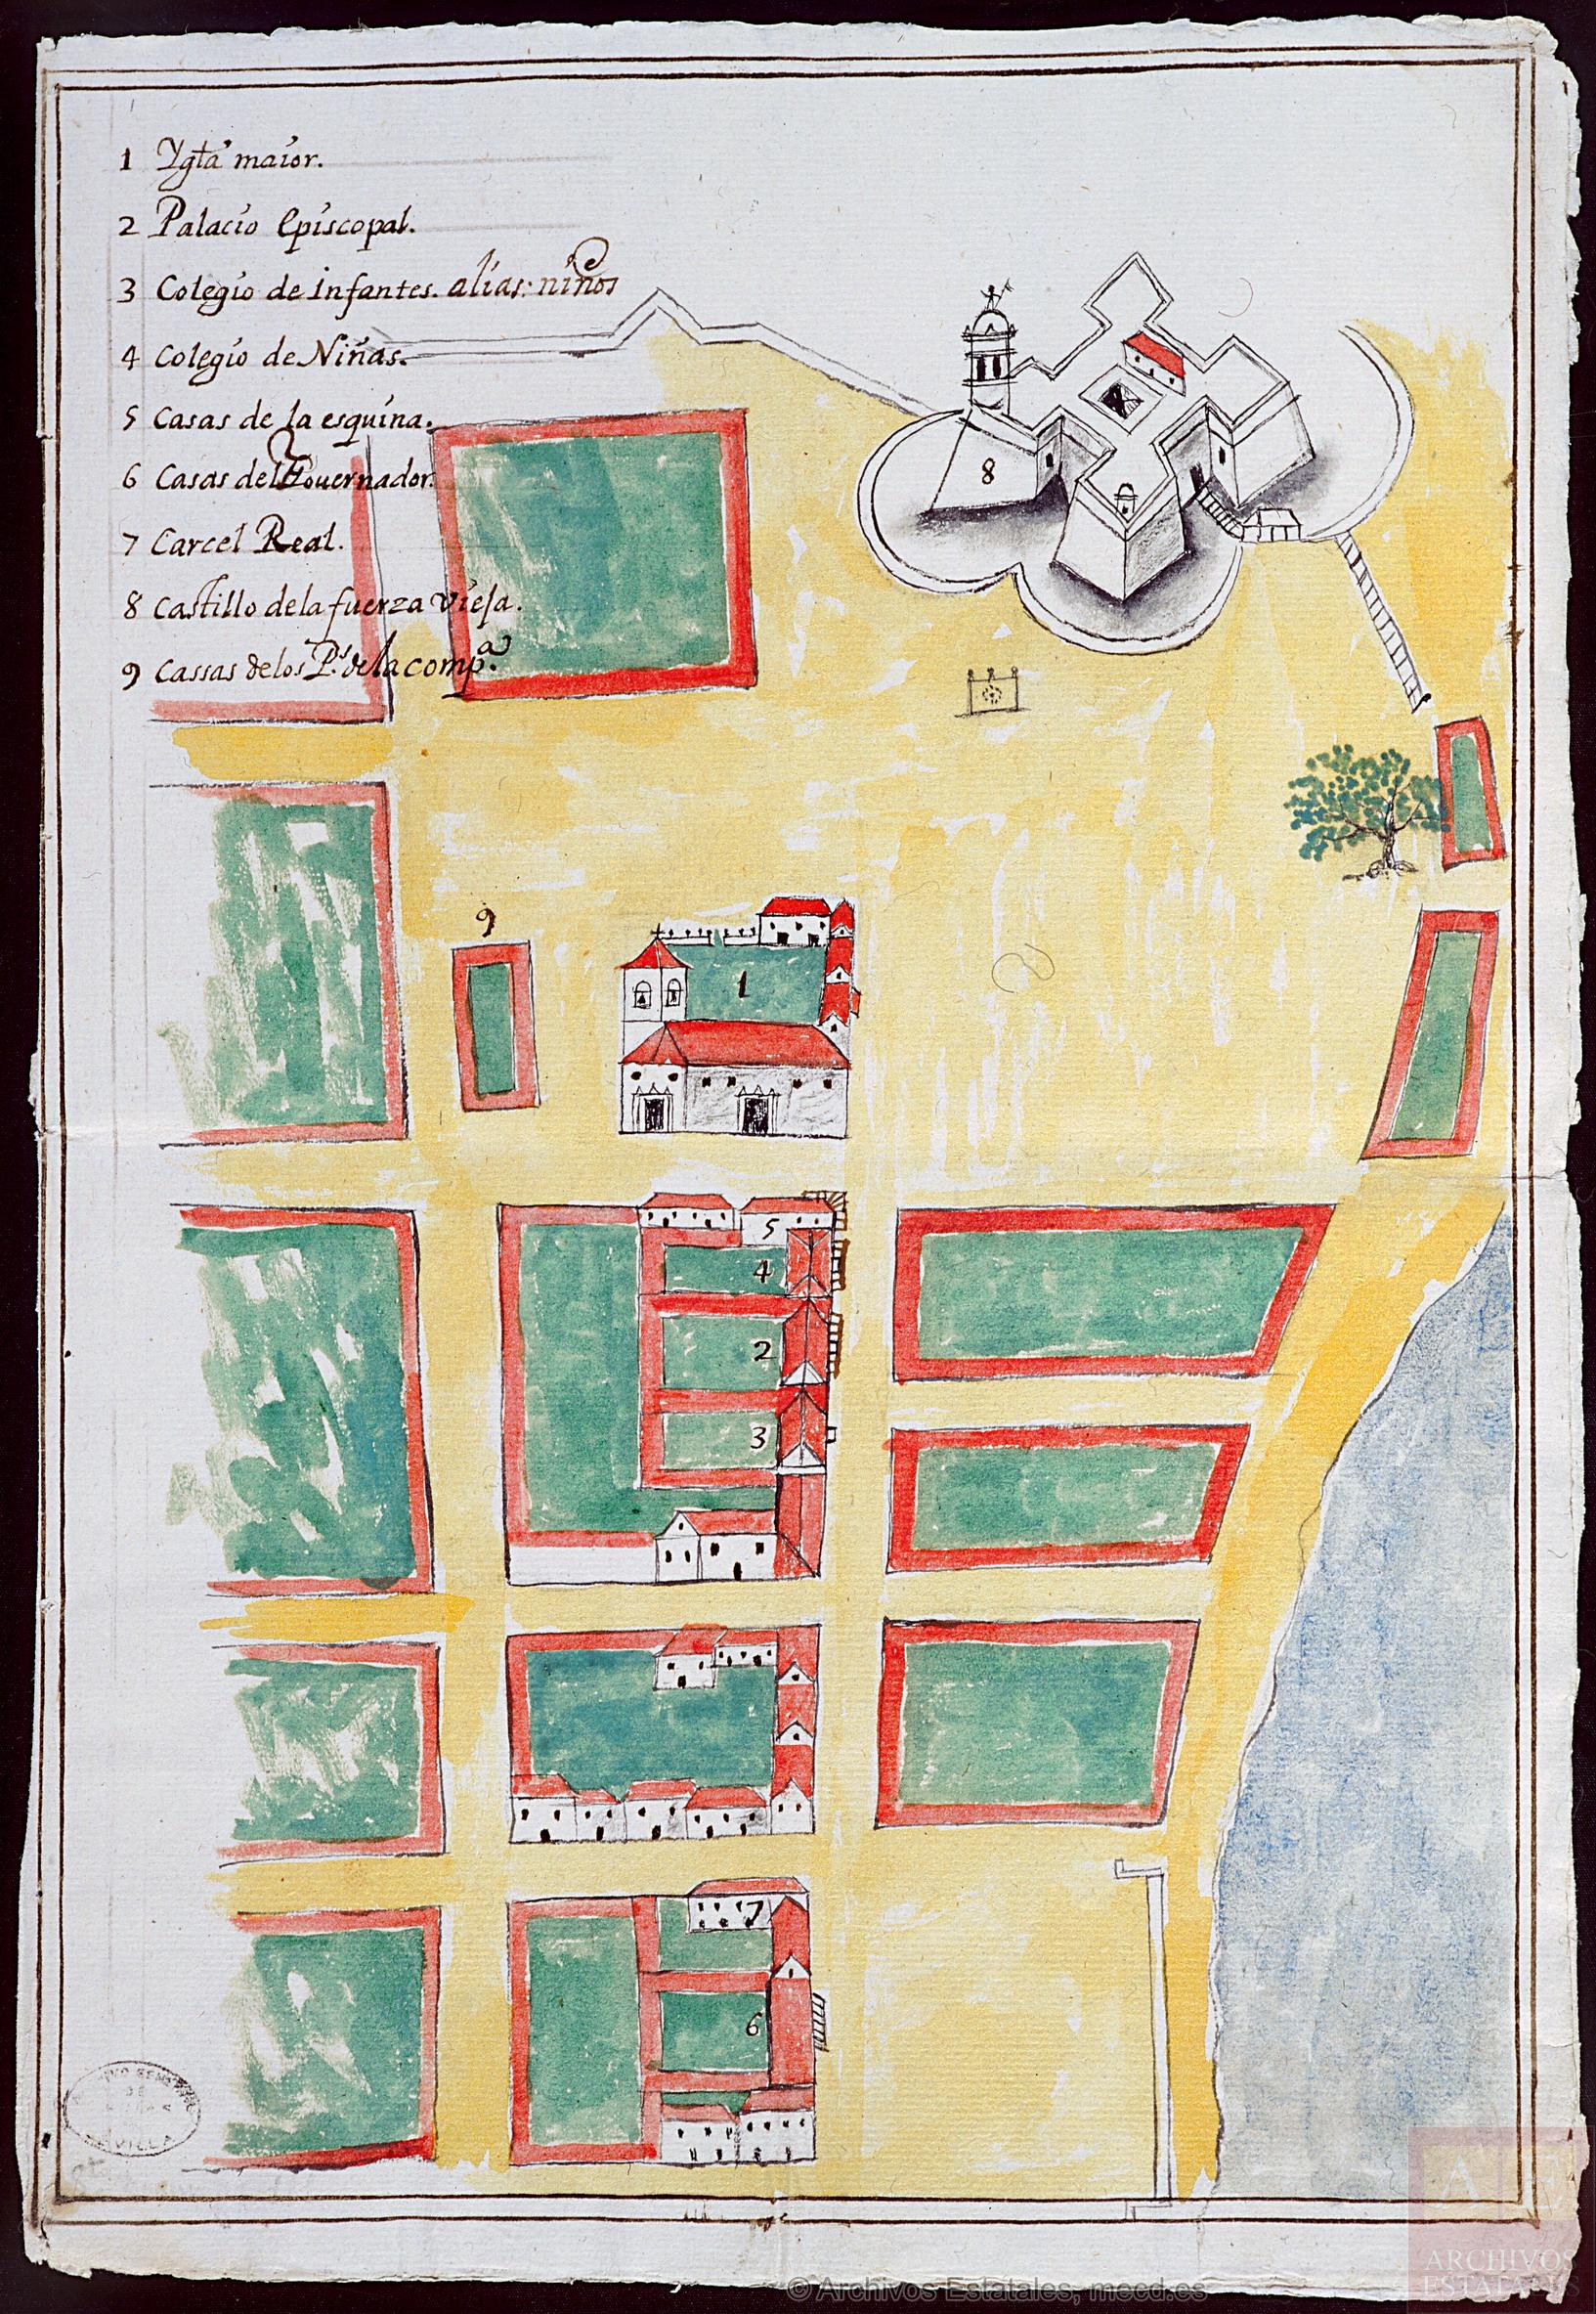 1 Ygta maior.
2 Palacio Episcopal.
3 Colegio de infantes. alias: niños
4 Colegio de Niñas.
5 Casas de la esquina.
6 Casas del Gouernador.
7 Carcel Real.
8 Castillo de la fuerza vieja.
9 Cassas de los Ps. de la compa.
8
9
1
5
4
2
3
7
6
SEVILLA
ARCHIVOS
ESTATALES
© Archivos Estatales, mecd.es